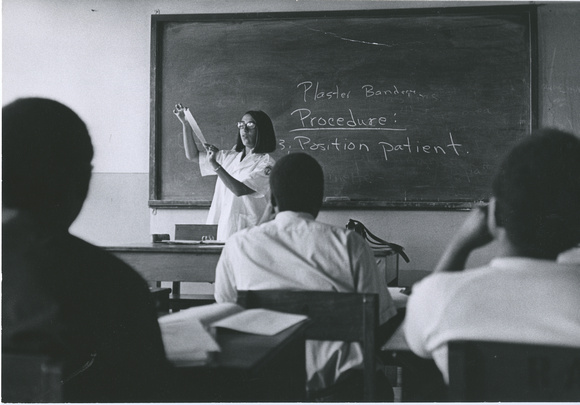 Plaster Bandage
Procedure:
3, Position patient.